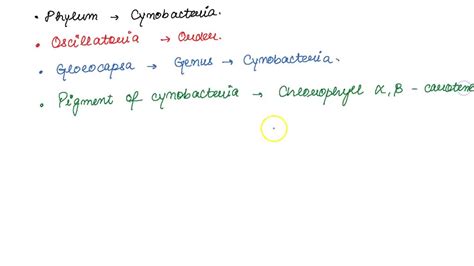 • Phylum → Cynobacteria.
• Oscillatoria → Order.
• Gloeocapsa → Genus → Cynobacteria.
• Pigment of cynobacteria → Chlorophyll α, β - carotene